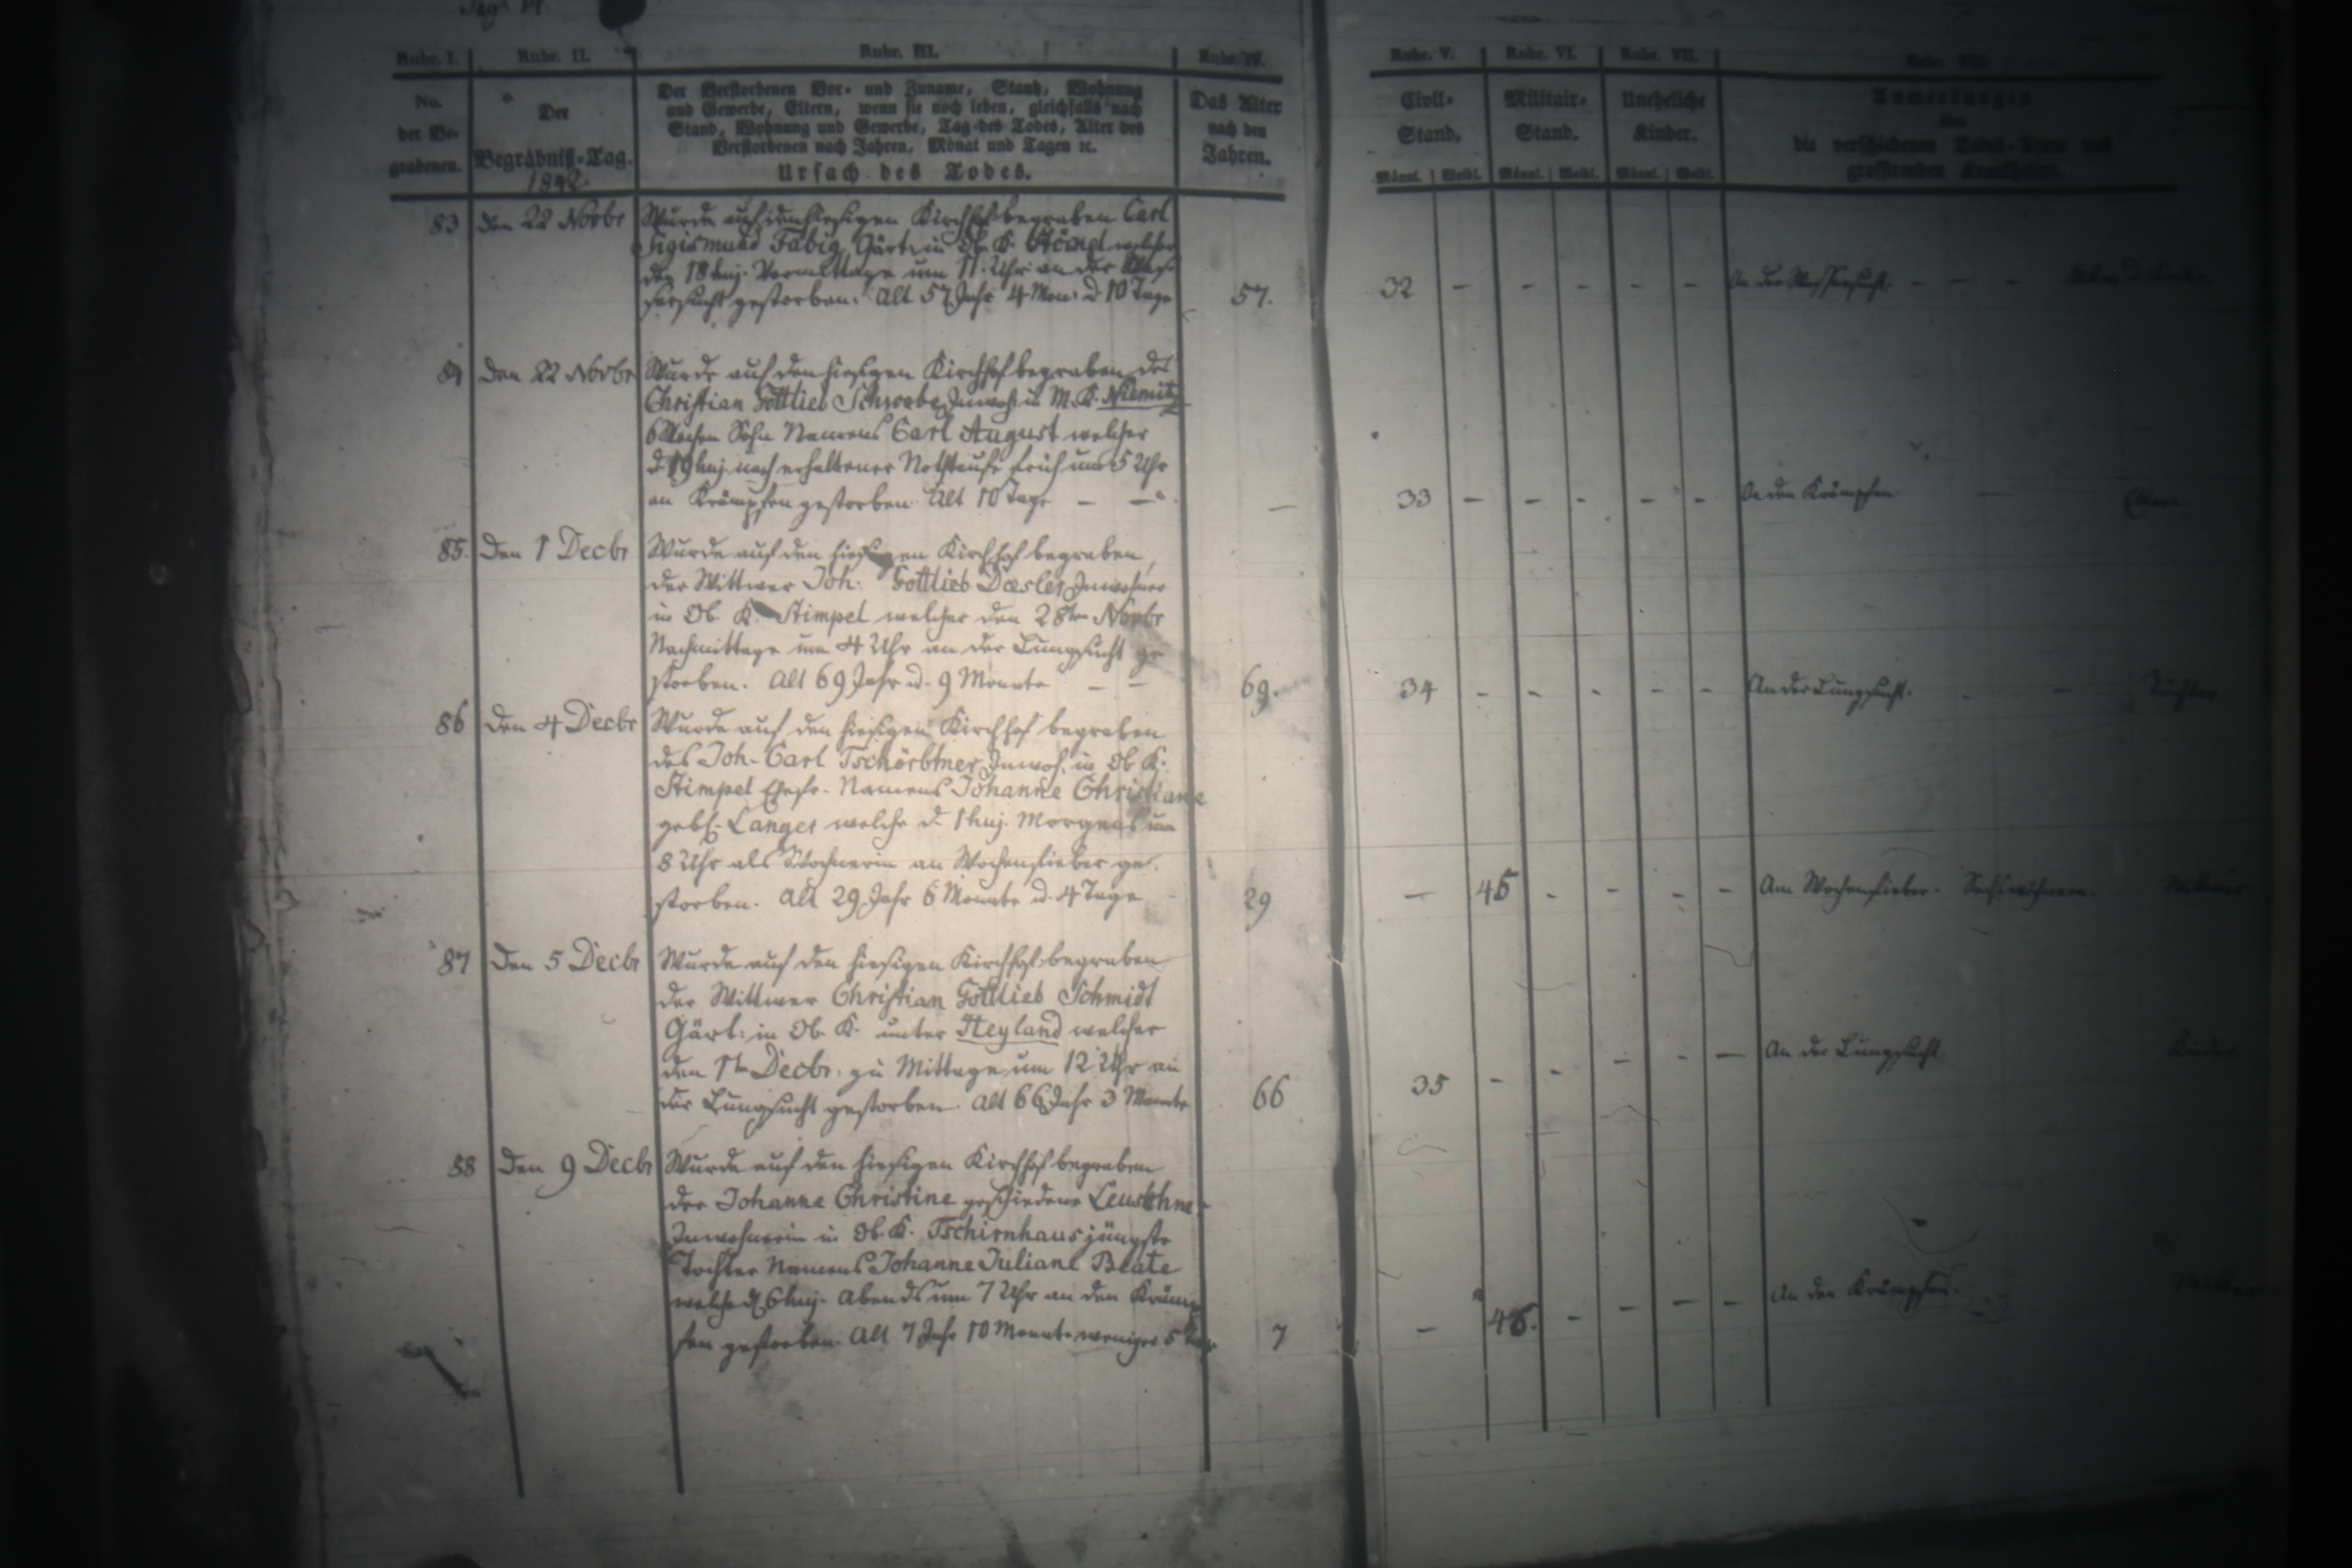 Rubr. I. Rubr. II. Rubr. III. Rubr. IV. Rubr. V. Rubr. VI. Rubr. VII.
No. der Be-grabenen.
Der Begräbniß-Tag. 1842.
Der Verstorbenen Vor- und Zuname, Stand, Wohnung
und Gewerbe, Eltern, wenn sie noch leben, gleichfalls nach
Stand, Wohnung und Gewerbe, Tag des Todes, Alter des
Verstorbenen nach Jahren, Monat und Tagen ꝛc.
Ursach des Todes.
Das Alter nach den Jahren.
Civil-Stand. Militair-Stand. Uneheliche Kinder.
Männl. Weibl. Männl. Weibl. Männl. Weibl.
Anmerkungen
über
die verschiedenen Todes-Arten und
grassirenden Krankheiten.
83 den 22 Novbr Wurde auf den hiesigen Kirchhof begraben Carl
Sigismund Fabig Gärt. in Ob. K. welcher
den 18 huj. Vormittags um 11 Uhr an der Was-
sersucht gestorben. Alt 57 Jahr 4 Mon: u. 10 Tage 57. 32 - - - - - An der Wassersucht. - - -
84 den 22 Novbr Wurde auf den hiesigen Kirchhof begraben des
Christian Gottlieb Schwabe Inwoh. in M. K. Niemitz
6 Wochen Sohn Namens Carl August welcher
d. 19 huj. nach erhaltener Nothtaufe früh um 5 Uhr
an Krämpfen gestorben. Alt 10 Tage - - — 33 - - - - - An den Krämpfen. — Eltern
85. den 1 Decbr Wurde auf den hiesigen Kirchhof begraben,
der Wittwer Joh: Gottlieb Daesler Inwohner
in Ob. K. Stimpel welcher den 28ten Novbr
Nachmittags um 4 Uhr an der Lungsucht ge
storben. Alt 69 Jahr u. 9 Monate - - 69. 34 - - - - - An der Lungsucht. Töchter
86 den 4 Decbr Wurde auf den hiesigen Kirchhof begraben
des Joh. Carl Tschörbtner Inwoh. in Ob K.
Stimpel Ehefr. Namens Johanne Christiane
geb. Langer welche d. 1 huj. Morgens um
8 Uhr als Wöchnerin an Wochenfieber ge-
storben. Alt 29 Jahr 6 Monate u. 4 Tage 29 — 45 - - - - Am Wochenfieber. Sechswöchnerin.
87 den 5 Decbr Wurde auf den hiesigen Kirchhof begraben
der Wittwer Christian Gottlieb Schmidt
Gärt: in Ob. K. unter Heyland welcher
den 1ten Decbr. zu Mittage um 12 Uhr an
der Lungsucht gestorben. Alt 66 Jahr 3 Monate 66 35 - - - - - An der Lungsucht. Kinder
88 den 9 Decbr Wurde auf den hiesigen Kirchhof begraben
der Johanne Christine geschiedene
Inwohnerin in Ob. K. Tschirnhaus jüngste
Tochter Namens Johanne Juliane Beate
welche d. 6 huj. Abends um 7 Uhr an den Kräm
fen gestorben. Alt 7 Jahr 10 Monate weniger 5 Tage 7 — 46. - - - - An den Krämpfen. Mutter